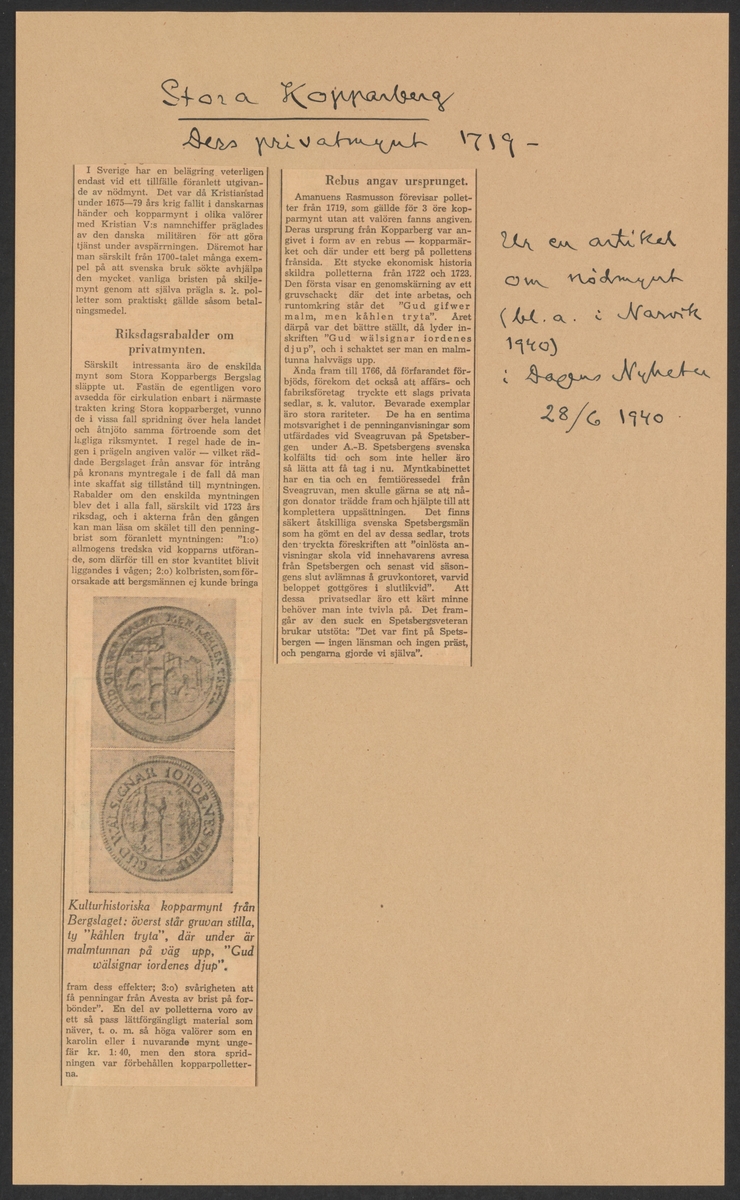 Stora Kopparberg
Ders privatmynt 1719 –
I Sverige har en belägring veterligen
endast vid ett tillfälle föranlett utgivan-
de av nödmynt. Det var då Kristianstad
under 1675—79 års krig fallit i danskarnas
händer och kopparmynt i olika valörer
med Kristian V:s namnchiffer präglades
av den danska militären för att göra
tjänst under avspärrningen. Däremot har
man särskilt från 1700-talet många exem-
pel på att svenska bruk sökte avhjälpa
den mycket vanliga bristen på skilje-
mynt genom att själva prägla s. k. pol-
letter som praktiskt gällde såsom betal-
ningsmedel.
Riksdagsrabalder om
privatmynten.
Särskilt intressanta äro de enskilda
mynt som Stora Kopparbergs Bergslag
släppte ut. Fastän de egentligen voro
avsedda för cirkulation enbart i närmaste
trakten kring Stora kopparberget, vunno
de i vissa fall spridning över hela landet
och åtnjöto samma förtroende som det
lagliga riksmyntet. I regel hade de in-
gen i prägeln angiven valör — vilket räd-
dade Bergslaget från ansvar för intrång
på kronans myntregale i de fall då man
inte skaffat sig tillstånd till myntningen.
Rabalder om den enskilda myntningen
blev det i alla fall, särskilt vid 1723 års
riksdag, och i akterna från den gången
kan man läsa om skälet till den penning-
brist som föranlett myntningen: "1:o)
allmogens tredska vid kopparns utföran-
de, som därför till en stor kvantitet blivit
liggandes i vågen; 2:o) kolbristen, som för-
orsakade att bergsmännen ej kunde bringa
GUD GIFWER MALM MEN KÅHLEN TRYTA
GUD WÄLSIGNAR IORDENES DIUP
Kulturhistoriska kopparmynt från
Bergslaget: överst står gruvan stilla,
ty "kåhlen tryta", där under är
malmtunnan på väg upp, "Gud
wälsignar iordenes djup".
fram dess effekter; 3:o) svårigheten att
få penningar från Avesta av brist på for-
bönder". En del av polletterna voro av
ett så pass lättförgängligt material som
näver, t. o. m. så höga valörer som en
karolin eller i nuvarande mynt unge-
fär kr. 1:40, men den stora sprid-
ningen var förbehållen kopparpolletter-
na.
Rebus angav ursprunget.
Amanuens Rasmusson förevisar pollet-
ter från 1719, som gällde för 3 öre kop-
parmynt utan att valören fanns angiven.
Deras ursprung från Kopparberg var an-
givet i form av en rebus — kopparmär-
ket och där under ett berg på pollettens
frånsida. Ett stycke ekonomisk historia
skildra polletterna från 1722 och 1723.
Den första visar en genomskärning av ett
gruvschackt där det inte arbetas, och
runtomkring står det "Gud gifwer
malm, men kåhlen tryta". Året
därpå var det bättre ställt, då lyder in-
skriften "Gud wälsignar iordenes
djup", och i schaktet ser man en malm-
tunna halvvägs upp.
Ända fram till 1766, då förfarandet för-
bjöds, förekom det också att affärs- och
fabriksföretag tryckte ett slags privata
sedlar, s. k. valutor. Bevarade exemplar
äro stora rariteter. De ha en sentima
motsvarighet i de penninganvisningar som
utfärdades vid Sveagruvan på Spetsber-
gen under A.-B. Spetsbergens svenska
kolfälts tid och som inte heller äro
så lätta att få tag i nu. Myntkabinettet
har en tia och en femtiöressedel från
Sveagruvan, men skulle gärna se att nå-
gon donator trädde fram och hjälpte till att
komplettera uppsättningen. Det finns
säkert åtskilliga svenska Spetsbergsmän
som ha gömt en del av dessa sedlar, trots
den tryckta föreskriften att "oinlösta an-
visningar skola vid innehavarens avresa
från Spetsbergen och senast vid säson-
gens slut avlämnas å gruvkontoret, varvid
beloppet gottgöres i slutlikvid". Att
dessa privatsedlar äro ett kärt minne
behöver man inte tvivla på. Det fram-
går av den suck en Spetsbergsveteran
brukar utstöta: "Det var fint på Spets-
bergen — ingen länsman och ingen präst,
och pengarna gjorde vi själva".
Ur en artikel
om nödmynt
(bl. a. i Narvik
1940)
i Dagens Nyheter
28/6 1940.